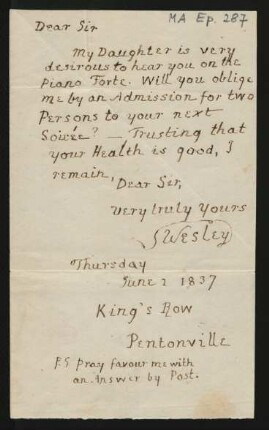 MA Ep. 287
Dear Sir
My Daughter is very
desirous to hear you on the
Piano Forte. Will you oblige
me by an Admission for two
Persons to your next
Soirée? — Trusting that
your Health is good, I
remain,
Dear Sir,
very truly Yours
S Wesley
Thursday
June 1 1837
King's Row
Pentonville
P.S pray favour me with
an Answer by Post.